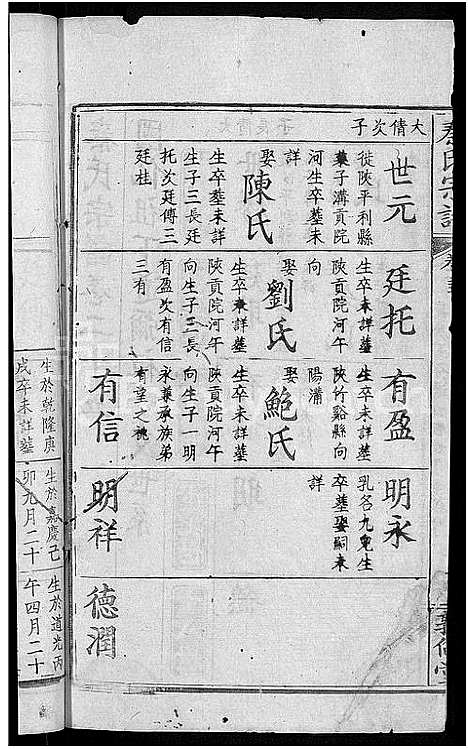 大倩次子
世元
徙陝平利縣
藥子溝貢院
河生卒塟未
詳
娶
陳氏
生卒塟未詳
生子三長廷
托次廷傅三
廷桂
廷托
生卒未詳塟
陝貢院河午
向
娶
劉氏
生卒未詳塟
陝貢院河午
向生子三長
有盈次有信
三有
有盈
生卒未詳塟
陝竹谿縣向
陽灣
娶
鮑氏
生卒未詳塟
陝貢院河午
向生子一明
永兼承族弟
有望之祧
有信
明永
乳名九兒生
卒塟娶嗣未
詳
明祥
德潤
生於乾隆庚
戌卒未詳塟
生於嘉慶己
卯九月二十
生於道光丙
午四月二十
氏宗譜